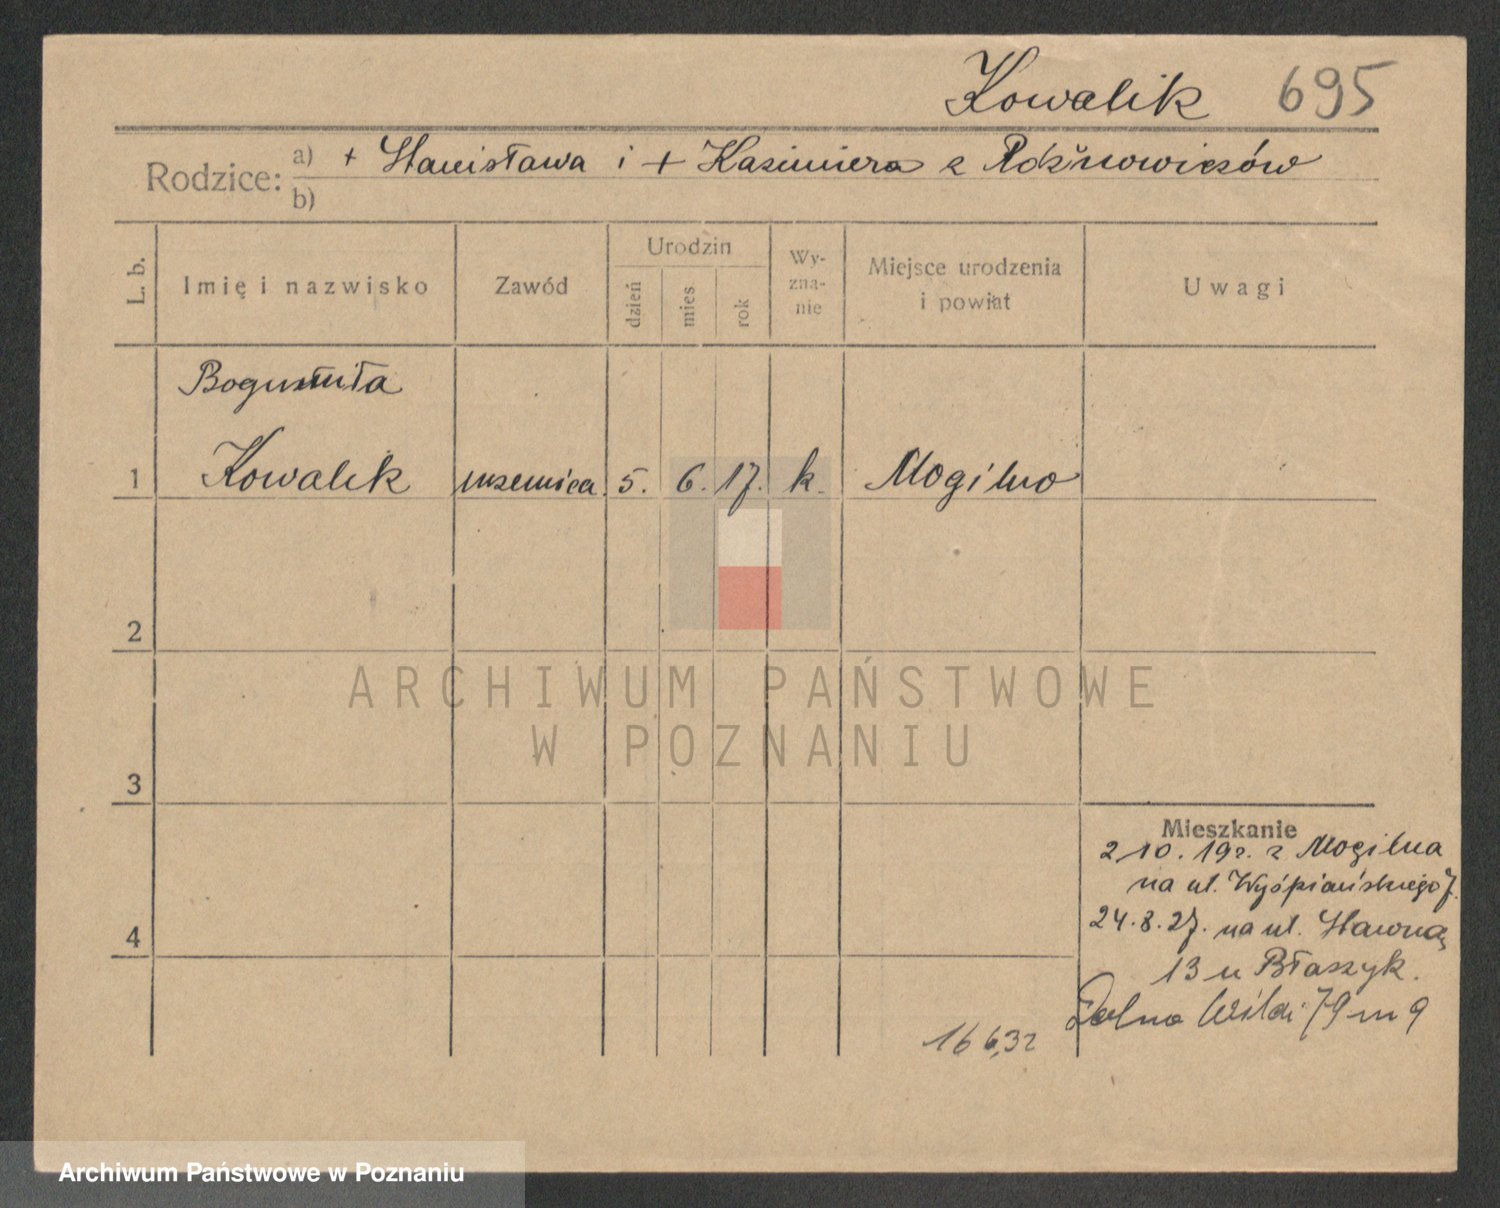 Kowalik 695
Rodzice: a) + Stanisława i + Kazimiera z
b)
L. b.
Imię i nazwisko
Zawód
Urodzin
dzień
mies
rok
Wy-
zna-
nie
Miejsce urodzenia
i powiat
Uwagi
Bogumiła
1 Kowalik uczenica 5. 6. 17. k. Mogilno
2
ARCHIWUM PAŃSTWOWE
W POZNANIU
3
Mieszkanie
2 10. 19r. z Mogilna
na ul. Wyśpiańskiego 7.
4
24.8.27. na ul. Sławną
13 u Błaszyk.
16 6,32 Dolna Wilda 79 m 9
Archiwum Państwowe w Poznaniu